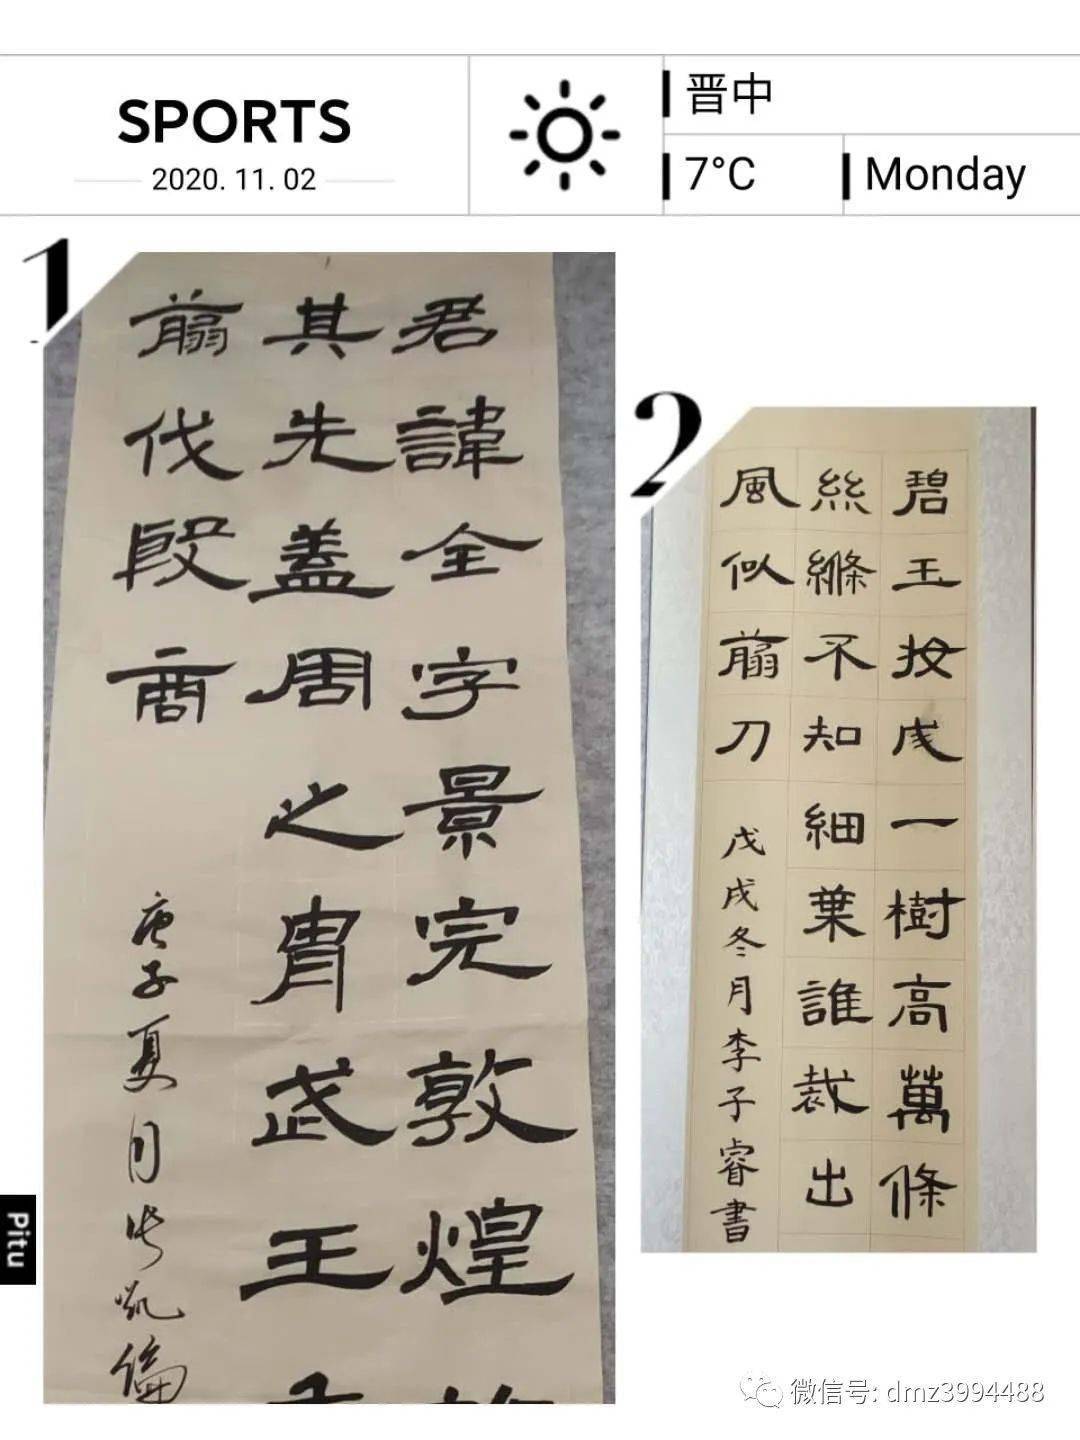 SPORTS
2020. 11. 02
晋中
7°C
Monday
1
君諱全字景完敦煌
其先蓋周之胄武王
翦伐殷商
庚子夏月张凯倫
2
碧玉妝成一樹高萬條
絲縧不知細葉誰裁出
風似翦刀
戊戌冬月李子睿書
Pitu
微信号: dmz3994488